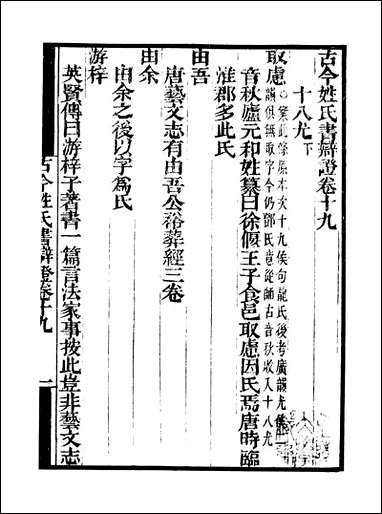 古今姓氏書辯證卷十九
十八尤下
取慮
案此條原本次十九侯句龍氏後考廣韻尤侯二
韻俱無取字今仍鄧氏意從師古音秋收入十八尤
音秋廬元和姓纂曰徐偃王子食邑取慮因氏焉唐時臨
淮郡多此氏
由吾
唐藝文志有由吾公裕葬經三卷
由余
由余之後以字為氏
游梓
英賢傳曰游梓子著書一篇言法家事按此豈非藝文志
古今姓氏書辯證卷十九
一